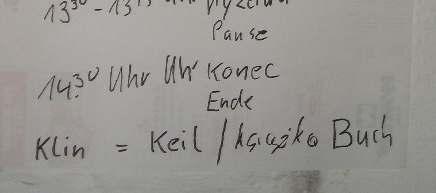 13³⁰ - 13⁴⁵ Uhr
Pause
14.³⁰ Uhr Uhr Konec
Ende
Klin = Keil / książka Buch